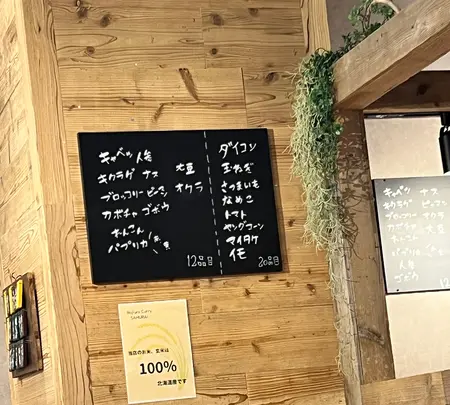 キャベツ 人参
キクラゲ ナス 大豆
ブロッコリー ピーマン オクラ
カボチャ ゴボウ
れんこん
パプリカ(赤 黄
12品目
ダイコン
玉ねぎ
さつまいも
なめこ
トマト
ヤングコーン
マイタケ
イモ
20品目
当店のお米、玄米は
100%
北海道産です
キャベツ ナス
キクラゲ ピーマン
ブロッコリー オクラ
カボチャ 大豆
れんこん
パプリカ
人参
ゴボウ
12